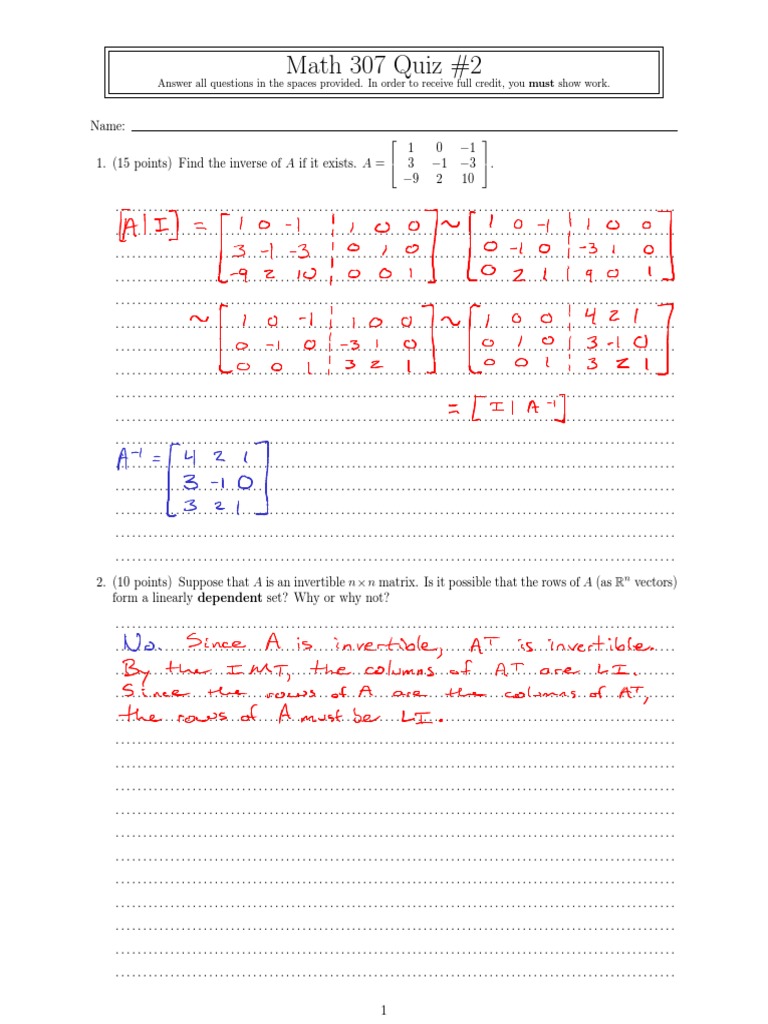 Math 307 Quiz #2
Answer all questions in the spaces provided. In order to receive full credit, you must show work.
Name:
1. (15 points) Find the inverse of A if it exists. A = [ 1 0 −1
3 −1 −3
−9 2 10 ].
[A|I] = [ 1 0 -1 | 1 0 0 ~ [ 1 0 -1 | 1 0 0
3 -1 -3 | 0 1 0 0 -1 0 | -3 1 0
-9 2 10 | 0 0 1 ] 0 2 1 | 9 0 1 ]
~ [ 1 0 -1 | 1 0 0 ~ [ 1 0 0 | 4 2 1
0 -1 0 | -3 1 0 0 1 0 | 3 -1 0
0 0 1 | 3 2 1 ] 0 0 1 | 3 2 1 ]
= [ I | A⁻¹ ]
A⁻¹ = [ 4 2 1
3 -1 0
3 2 1 ]
2. (10 points) Suppose that A is an invertible n×n matrix. Is it possible that the rows of A (as ℝⁿ vectors)
form a linearly dependent set? Why or why not?
No. Since A is invertible, AT is invertible.
By the IMT, the columns of AT are LI.
Since the rows of A are the columns of AT,
the rows of A must be LI.
1